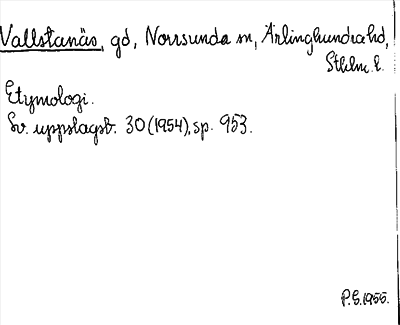 Vallstanäs, gd, Norrsunda sn, Ärlinghundra hd,
Sthlm. l.
Etymologi.
Sv. uppslagsb. 30 (1954), sp. 953.
P.E. 1955.